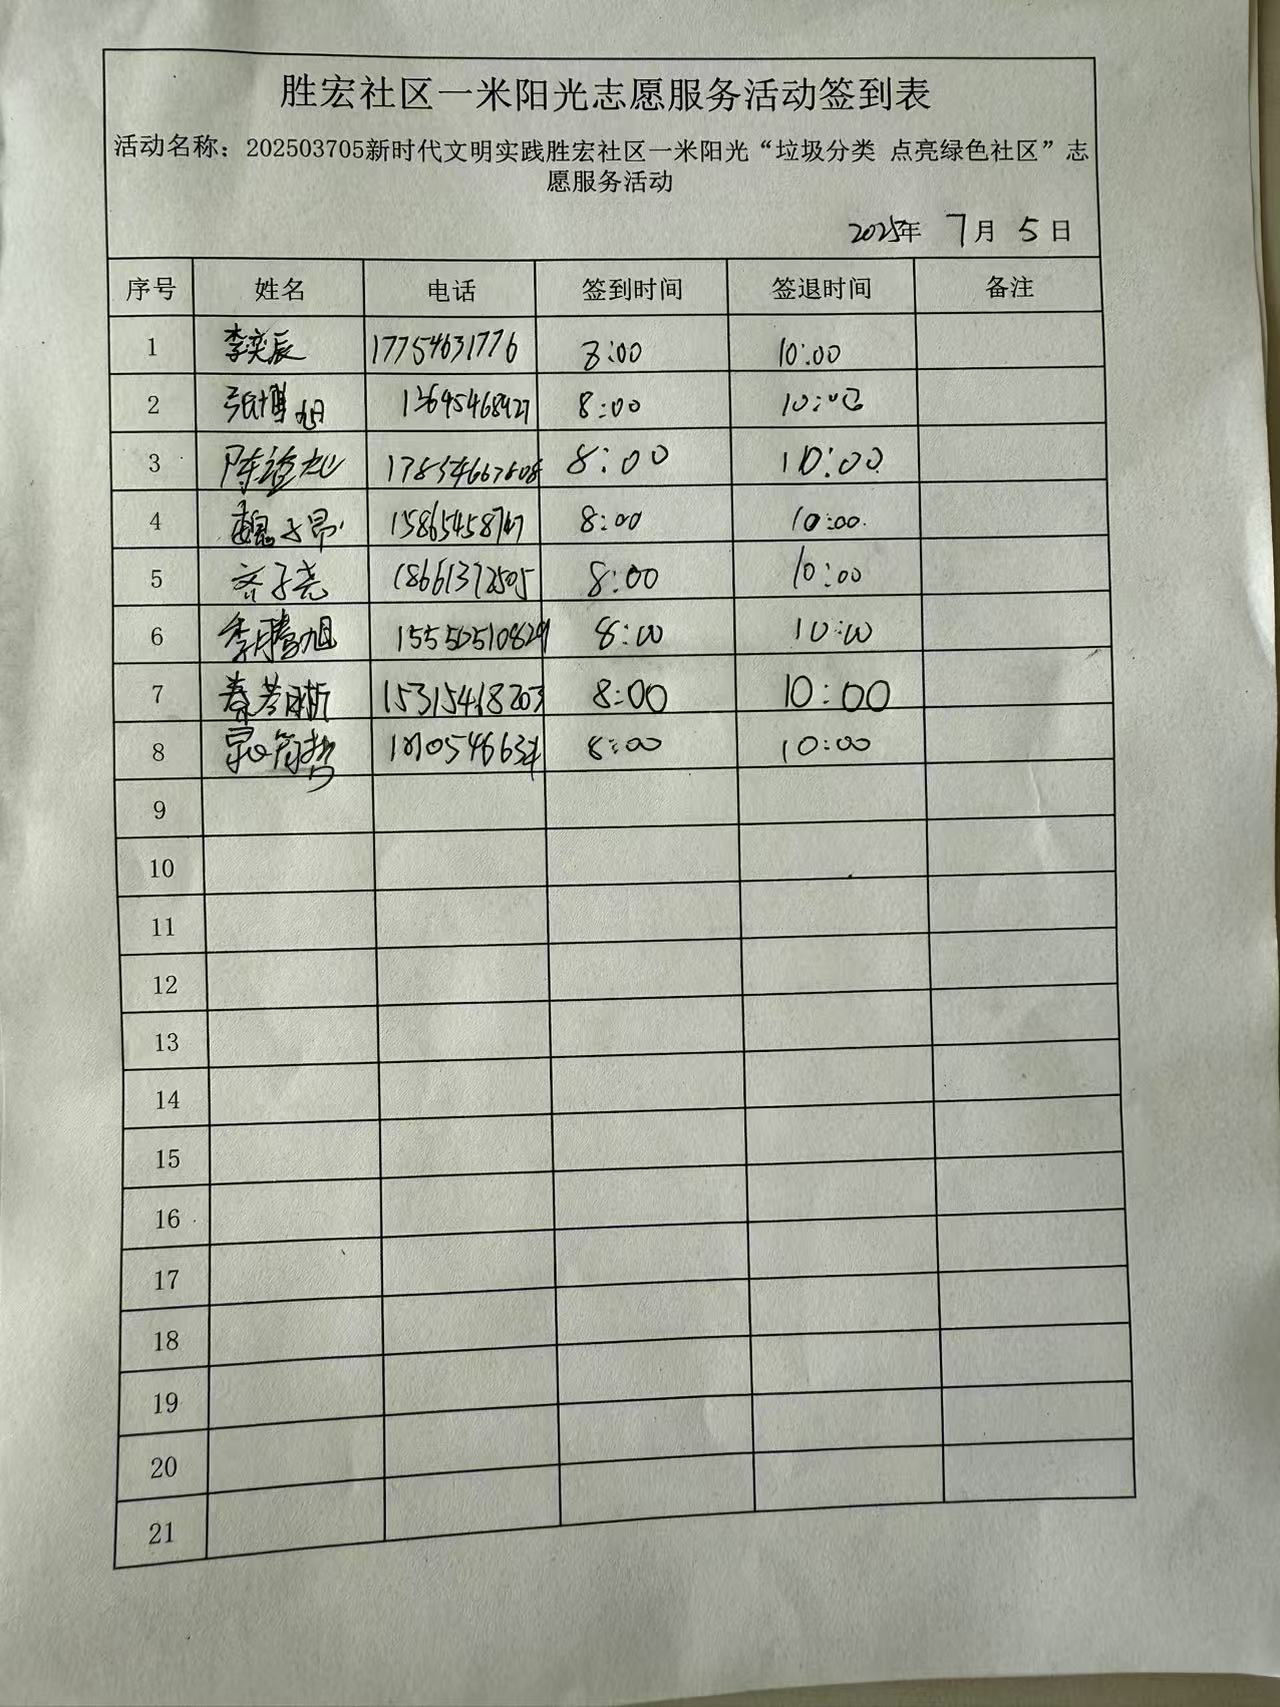 胜宏社区一米阳光志愿服务活动签到表
活动名称：202503705新时代文明实践胜宏社区一米阳光“垃圾分类 点亮绿色社区”志
愿服务活动
2025年 7月 5日
序号 姓名 电话 签到时间 签退时间 备注
1 李奕辰 17754631776 8:00 10:00
2 张博旭 8:00 10:00
3 8:00 10:00
4 魏子昂 8:00 10:00
5 齐子尧 18661372505 8:00 10:00
6 李腾旭 8:00 10:00
7 15315468203 8:00 10:00
8 8:00 10:00
9
10
11
12
13
14
15
16
17
18
19
20
21